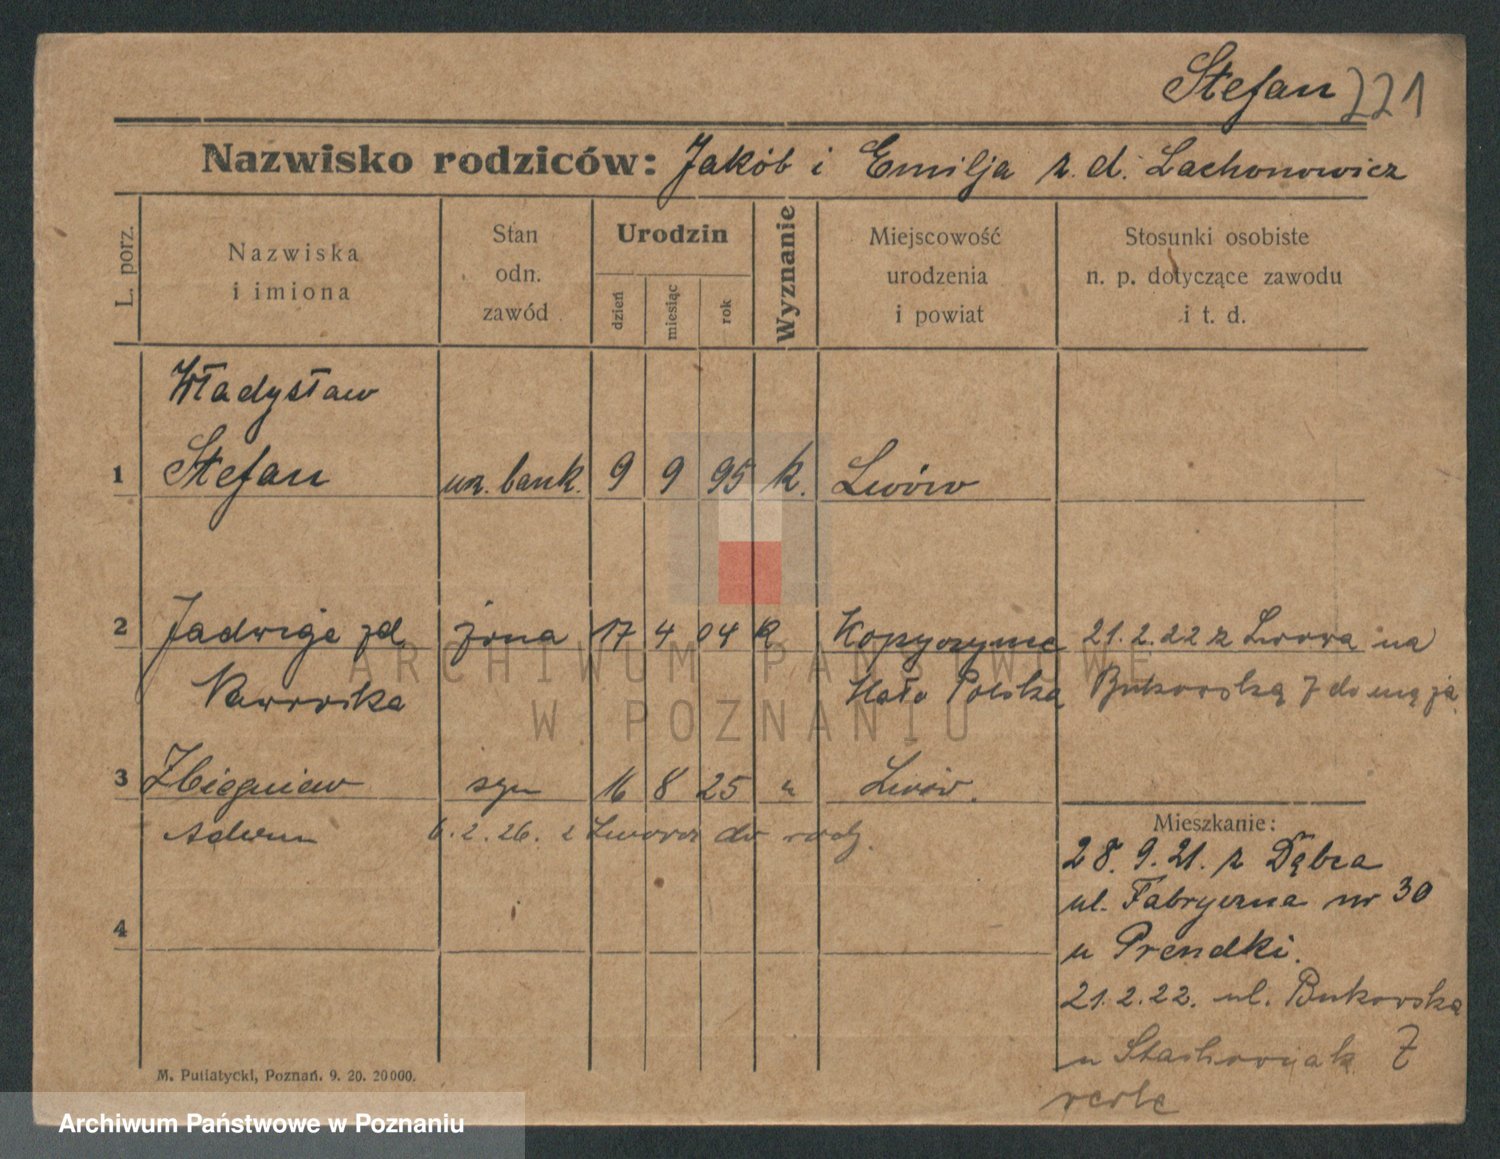 Stefan 221
Nazwisko rodziców: Jakób i Emilja z. d. Lachonowicz
L. porz.
Nazwiska
i imiona
Stan
odn.
zawód
Urodzin
dzień
miesiąc
rok
Wyznanie
Miejscowość
urodzenia
i powiat
Stosunki osobiste
n. p. dotyczące zawodu
i t. d.
Władysław
1 Stefan urz. bank. 9 9 95 k. Lwów
2 Jadwiga zd. żona 17 4 04 k Kopyczynce 21.2.22 z Lwowa na
Nawrocka Mało Polska Bukowską 7 do męża
3 Zbigniew syn 16 8 25 " Lwów.
Adam 6.2.26. z Lwowa do rodz.
Mieszkanie:
28.9.21. z Dąbra
ul. Fabryczna nr 30
u Prendki.
4
21.2.22. ul. Bukowska
u Stachowiak 7
verte
M. Putiatycki, Poznań. 9. 20. 20000.
ARCHIWUM PAŃSTWOWE
W POZNANIU
Archiwum Państwowe w Poznaniu